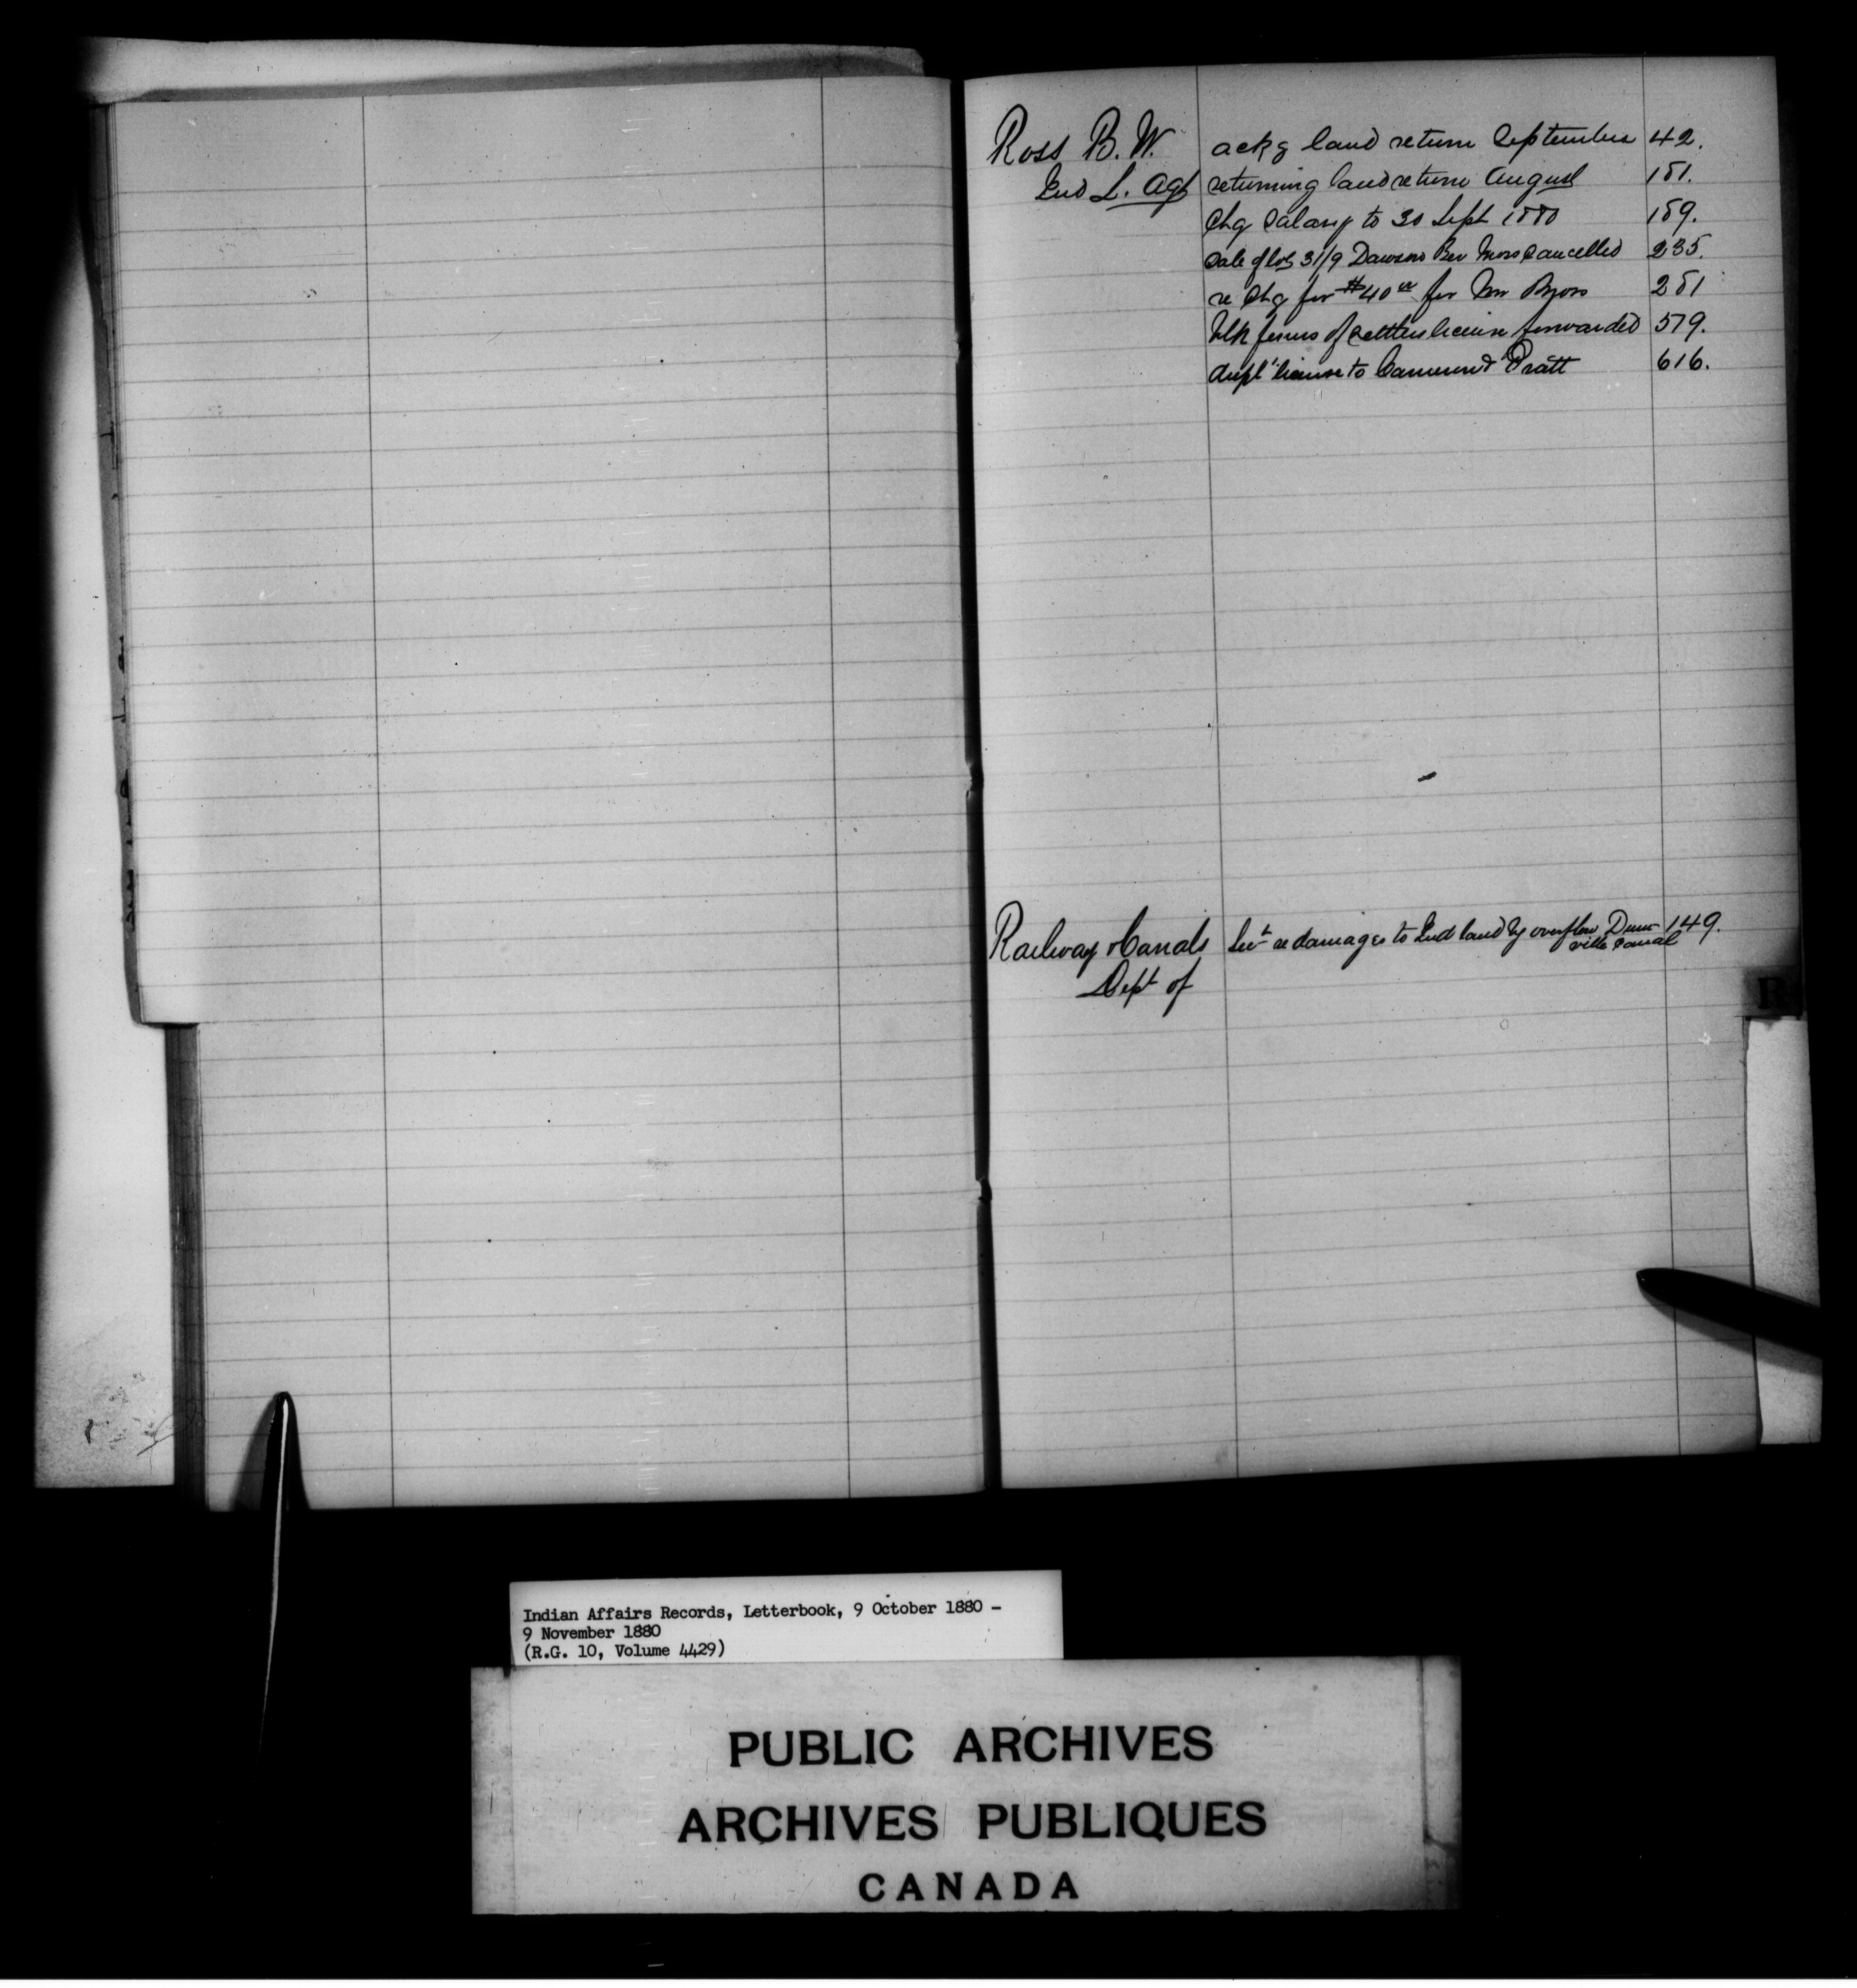 Ross B. W. ackg land return September 42.
Ind L. Agt returning land return August 181.
Chq Salary to 30 Sept 1880 189.
Sale of lot 31/9 Dawson cancelled 235.
re Chq for $40 00 for Mr 281
blk forms of settlers license forwarded 579.
dupl license to Cameron & Pratt 616.
Railway & Canals re damages to Ind land by overflow Dunn- 149.
ville Canal
Dept of
R
Indian Affairs Records, Letterbook, 9 October 1880 -
9 November 1880
(R.G. 10, Volume 4429)
PUBLIC ARCHIVES
ARCHIVES PUBLIQUES
CANADA